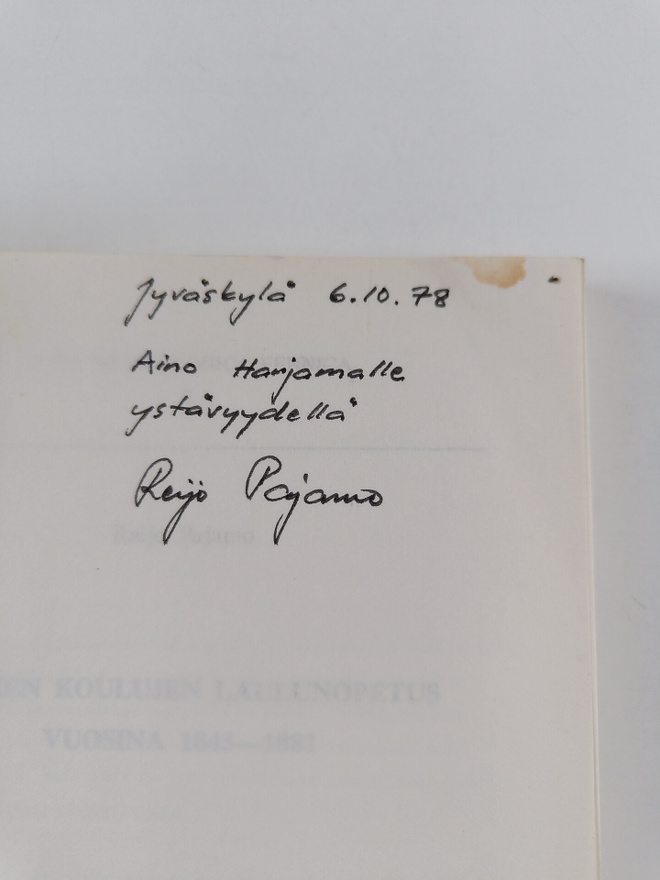 Jyväskylä 6.10.78
Aino Harjamalle
ystävyydellä
Reijo Pajamo
Reijo Pajamo
KOULUJEN LAULUNOPETUS
VUOSINA 1843—1881